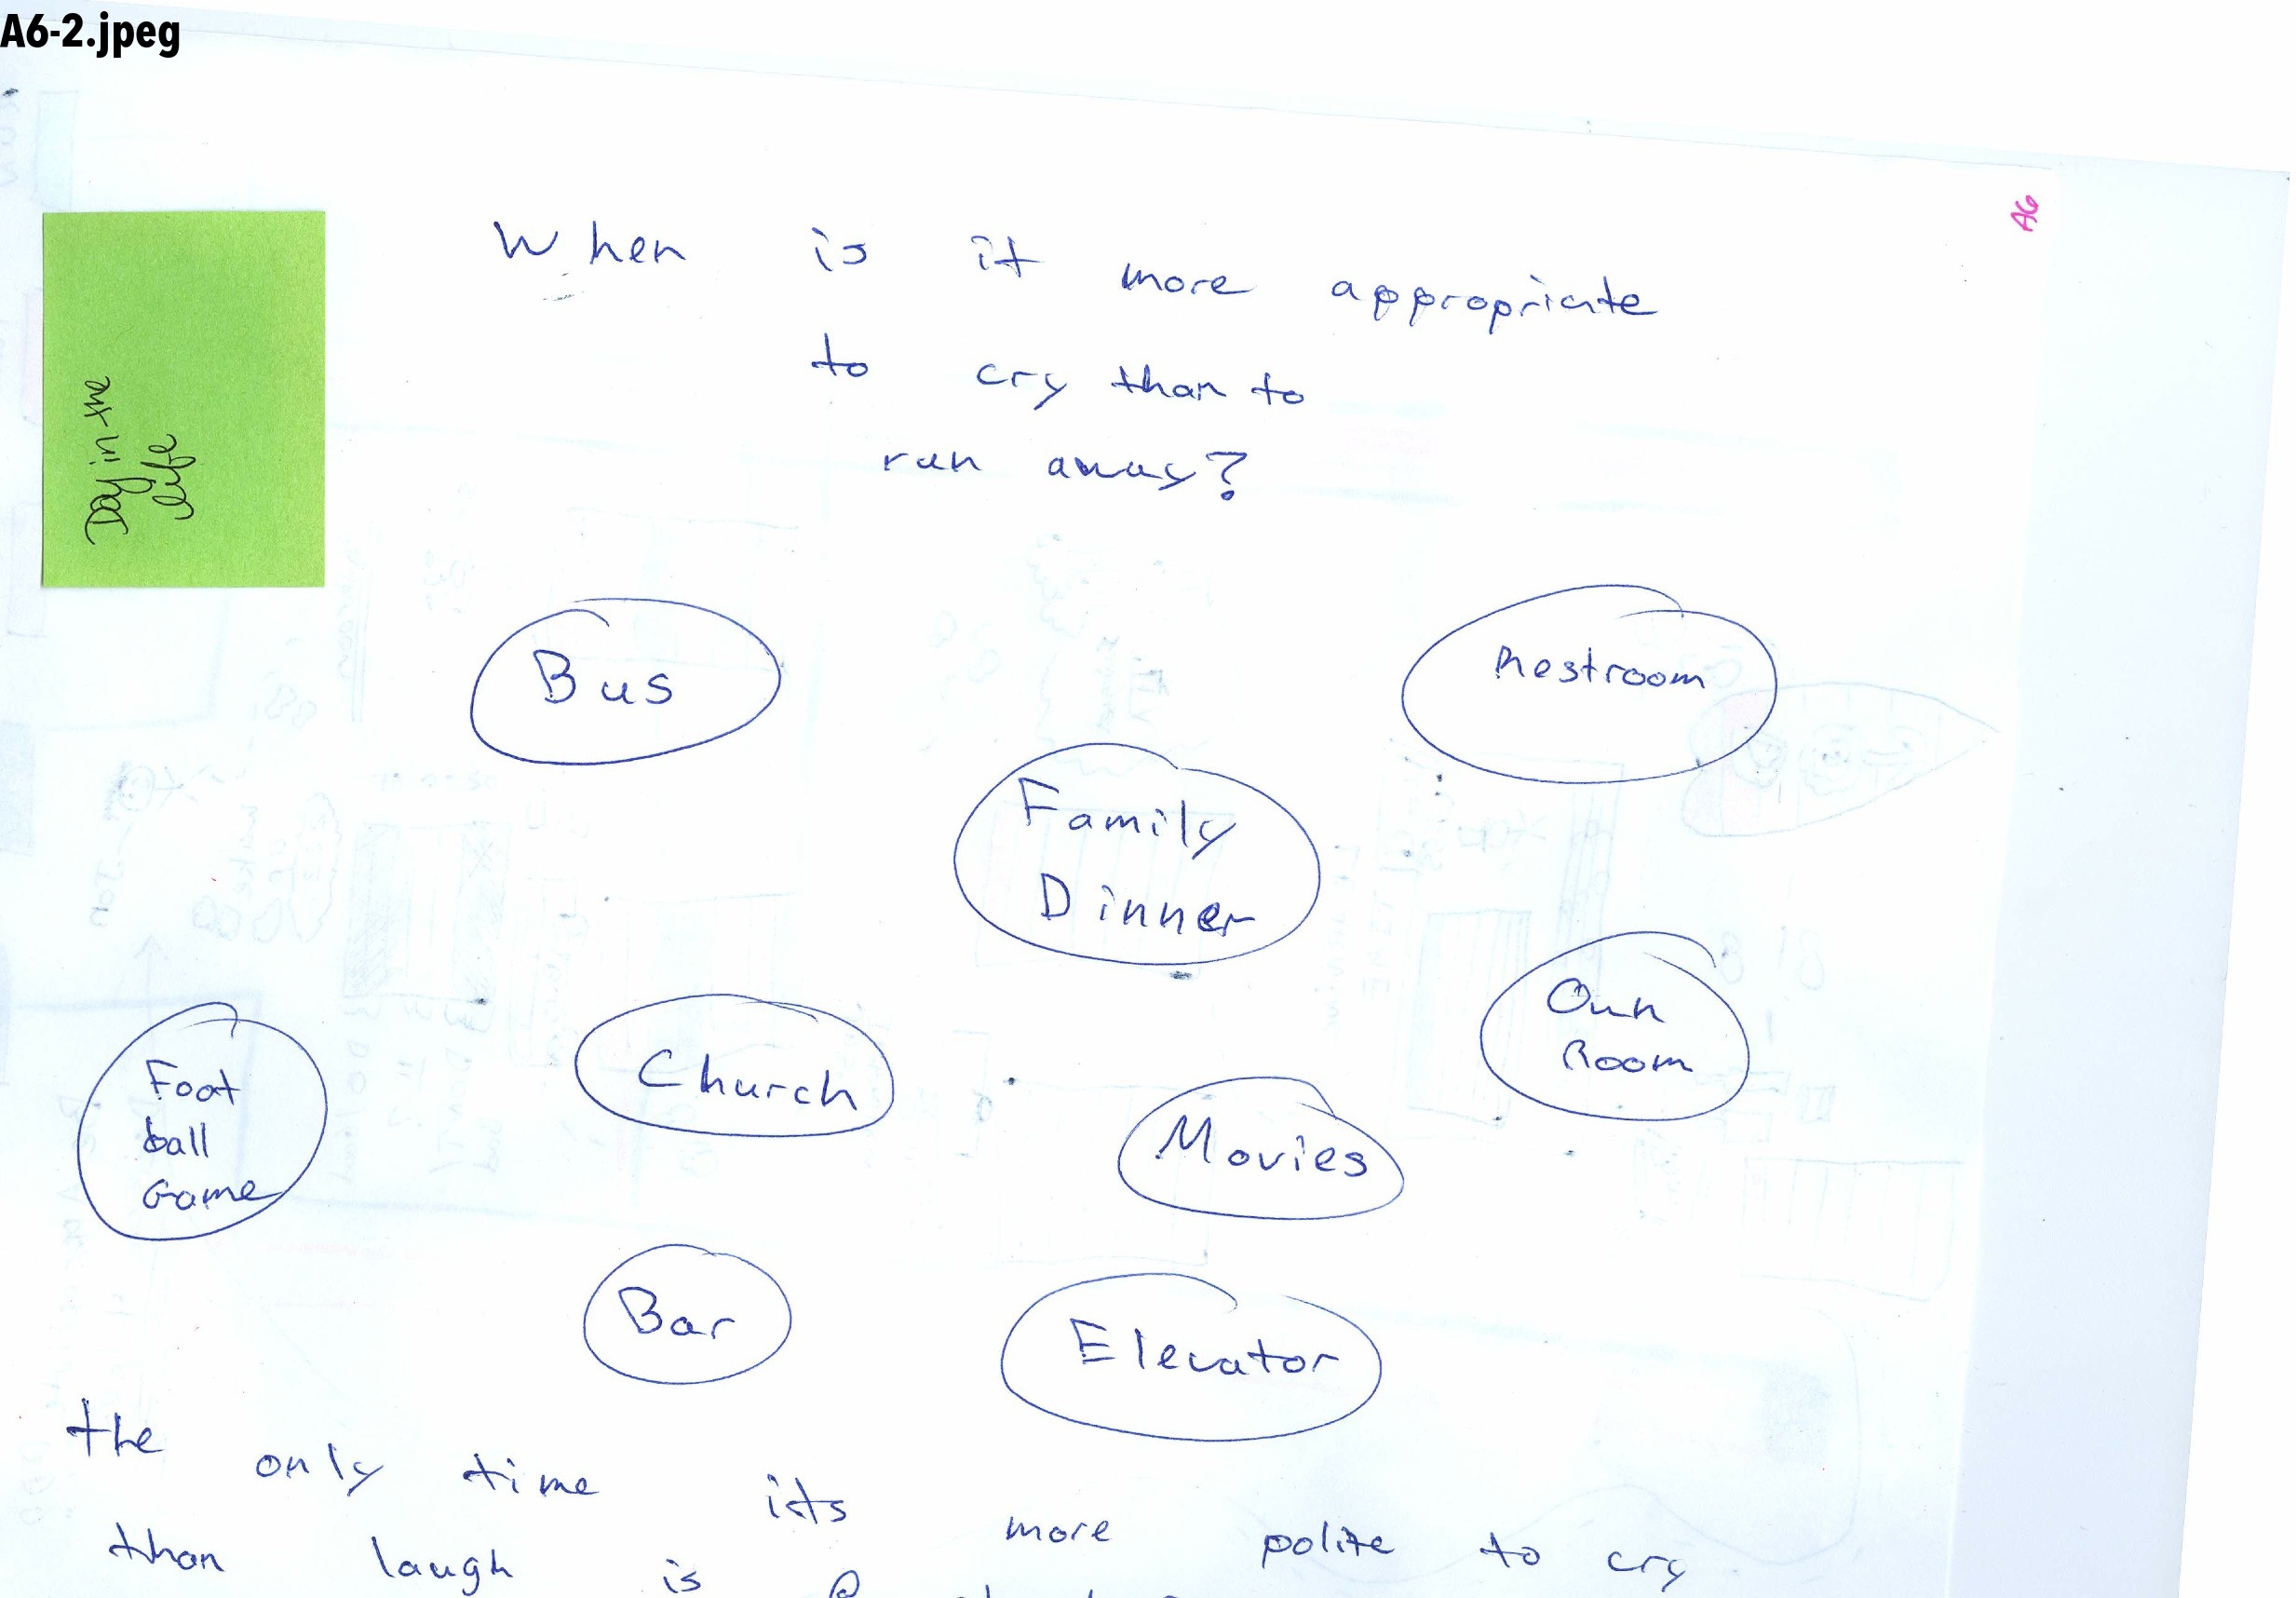 A6-2.jpeg
A6
When is it more appropriate
to cry than to
run away?
Day in the
life
Bus
Restroom
Family
Dinner
Own
Room
Foot
ball
Game
Church
Movies
Bar
Elevator
the only time its more polite to cry
than laugh is @